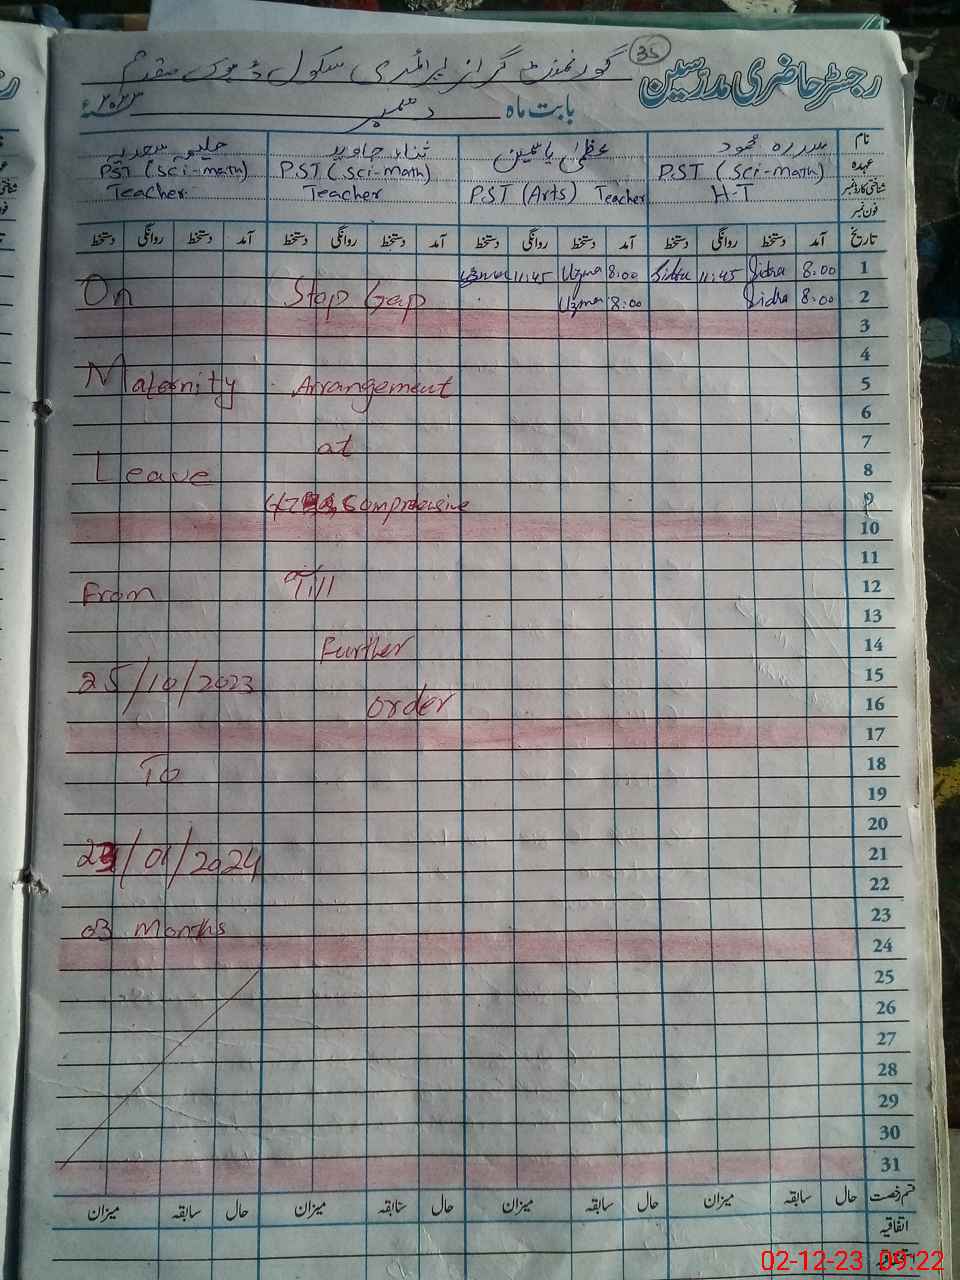 35
رجسٹر حاضری مدرسین
گورنمنٹ گرلز پرائمری سکول ڈھوک مقدم
بابت ماہ دسمبر ۲۰۲۳ء
نام سدرہ محمود عظمیٰ یاسمین ثناء جاوید حلیمہ سعدیہ
عہدہ PST (Sci-math) PST (Arts) Teacher PST (Sci-math) PST (Sci-math)
شناختی کارڈ نمبر H-T Teacher Teacher
فون نمبر
تاریخ آمد دستخط روانگی دستخط آمد دستخط روانگی دستخط آمد دستخط روانگی دستخط آمد دستخط روانگی دستخط
1 8.00 Sidra 11:45 Sidra 8:00 Uzma 11:45 Uzma
2 8:00 Sidra 8:00 Uzma Stop Gap On
3
4
5 Arrangement Maternity
6
7 at
8 Leave
9 Comprehensive
10
11
12 Till From
13
14 Further
15 25/10/2023
16 order
17
18 To
19
20
21 /01/2024
22
23 03 Months
24
25
26
27
28
29
30
31
قسم رخصت حال سابقہ میزان حال سابقہ میزان حال سابقہ میزان حال سابقہ میزان
اتفاقیہ
02-12-23 09:22